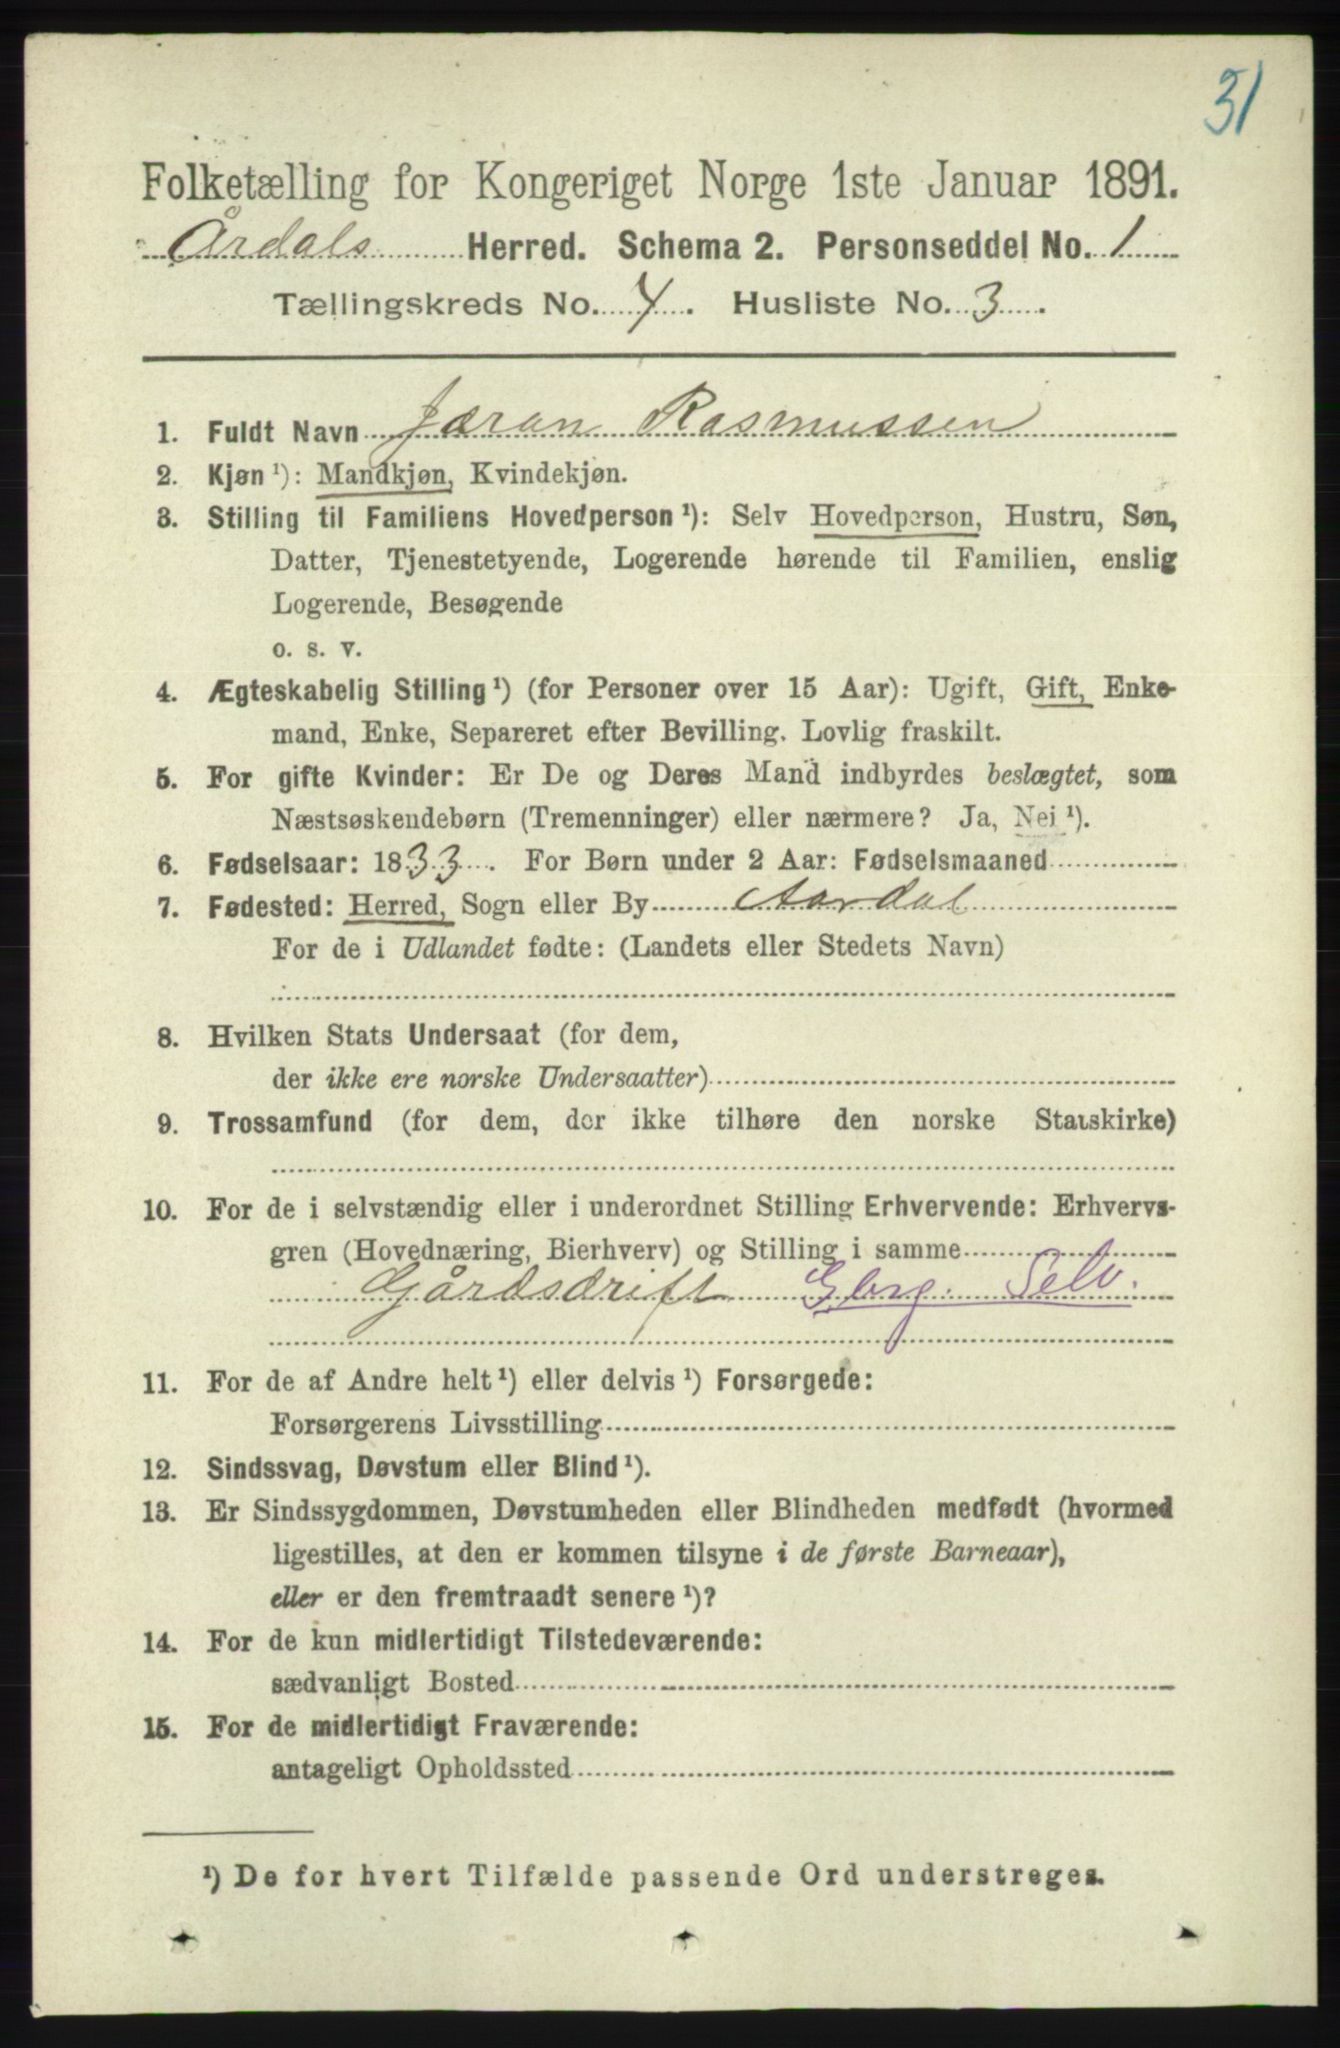 31
Folketælling for Kongeriget Norge 1ste Januar 1891.
Årdals Herred. Schema 2. Personseddel No. 1
Tællingskreds No. 4. Husliste No. 3.
1. Fuldt Navn Jæran Rasmussen
2. Kjøn ¹): Mandkjøn, Kvindekjøn.
3. Stilling til Familiens Hovedperson ¹): Selv Hovedperson, Hustru, Søn,
Datter, Tjenestetyende, Logerende hørende til Familien, enslig
Logerende, Besøgende
o. s. v.
4. Ægteskabelig Stilling ¹) (for Personer over 15 Aar): Ugift, Gift, Enke-
mand, Enke, Separeret efter Bevilling. Lovlig fraskilt.
5. For gifte Kvinder: Er De og Deres Mand indbyrdes beslægtet, som
Næstsøskendebørn (Tremenninger) eller nærmere? Ja, Nei ¹).
6. Fødselsaar: 1833. For Børn under 2 Aar: Fødselsmaaned
7. Fødested: Herred, Sogn eller By Aardal
For de i Udlandet fødte: (Landets eller Stedets Navn)
8. Hvilken Stats Undersaat (for dem,
der ikke ere norske Undersaatter)
9. Trossamfund (for dem, der ikke tilhøre den norske Statskirke)
10. For de i selvstændig eller i underordnet Stilling Erhvervende: Erhvervs-
gren (Hovednæring, Bierhverv) og Stilling i samme
Gårdsdrift Gbrg. Selv.
11. For de af Andre helt ¹) eller delvis ¹) Forsørgede:
Forsørgerens Livsstilling
12. Sindssvag, Døvstum eller Blind ¹).
13. Er Sindssygdommen, Døvstumheden eller Blindheden medfødt (hvormed
ligestilles, at den er kommen tilsyne i de første Barneaar),
eller er den fremtraadt senere ¹)?
14. For de kun midlertidigt Tilstedeværende:
sædvanligt Bosted
15. For de midlertidigt Fraværende:
antageligt Opholdssted
¹) De for hvert Tilfælde passende Ord understreges.